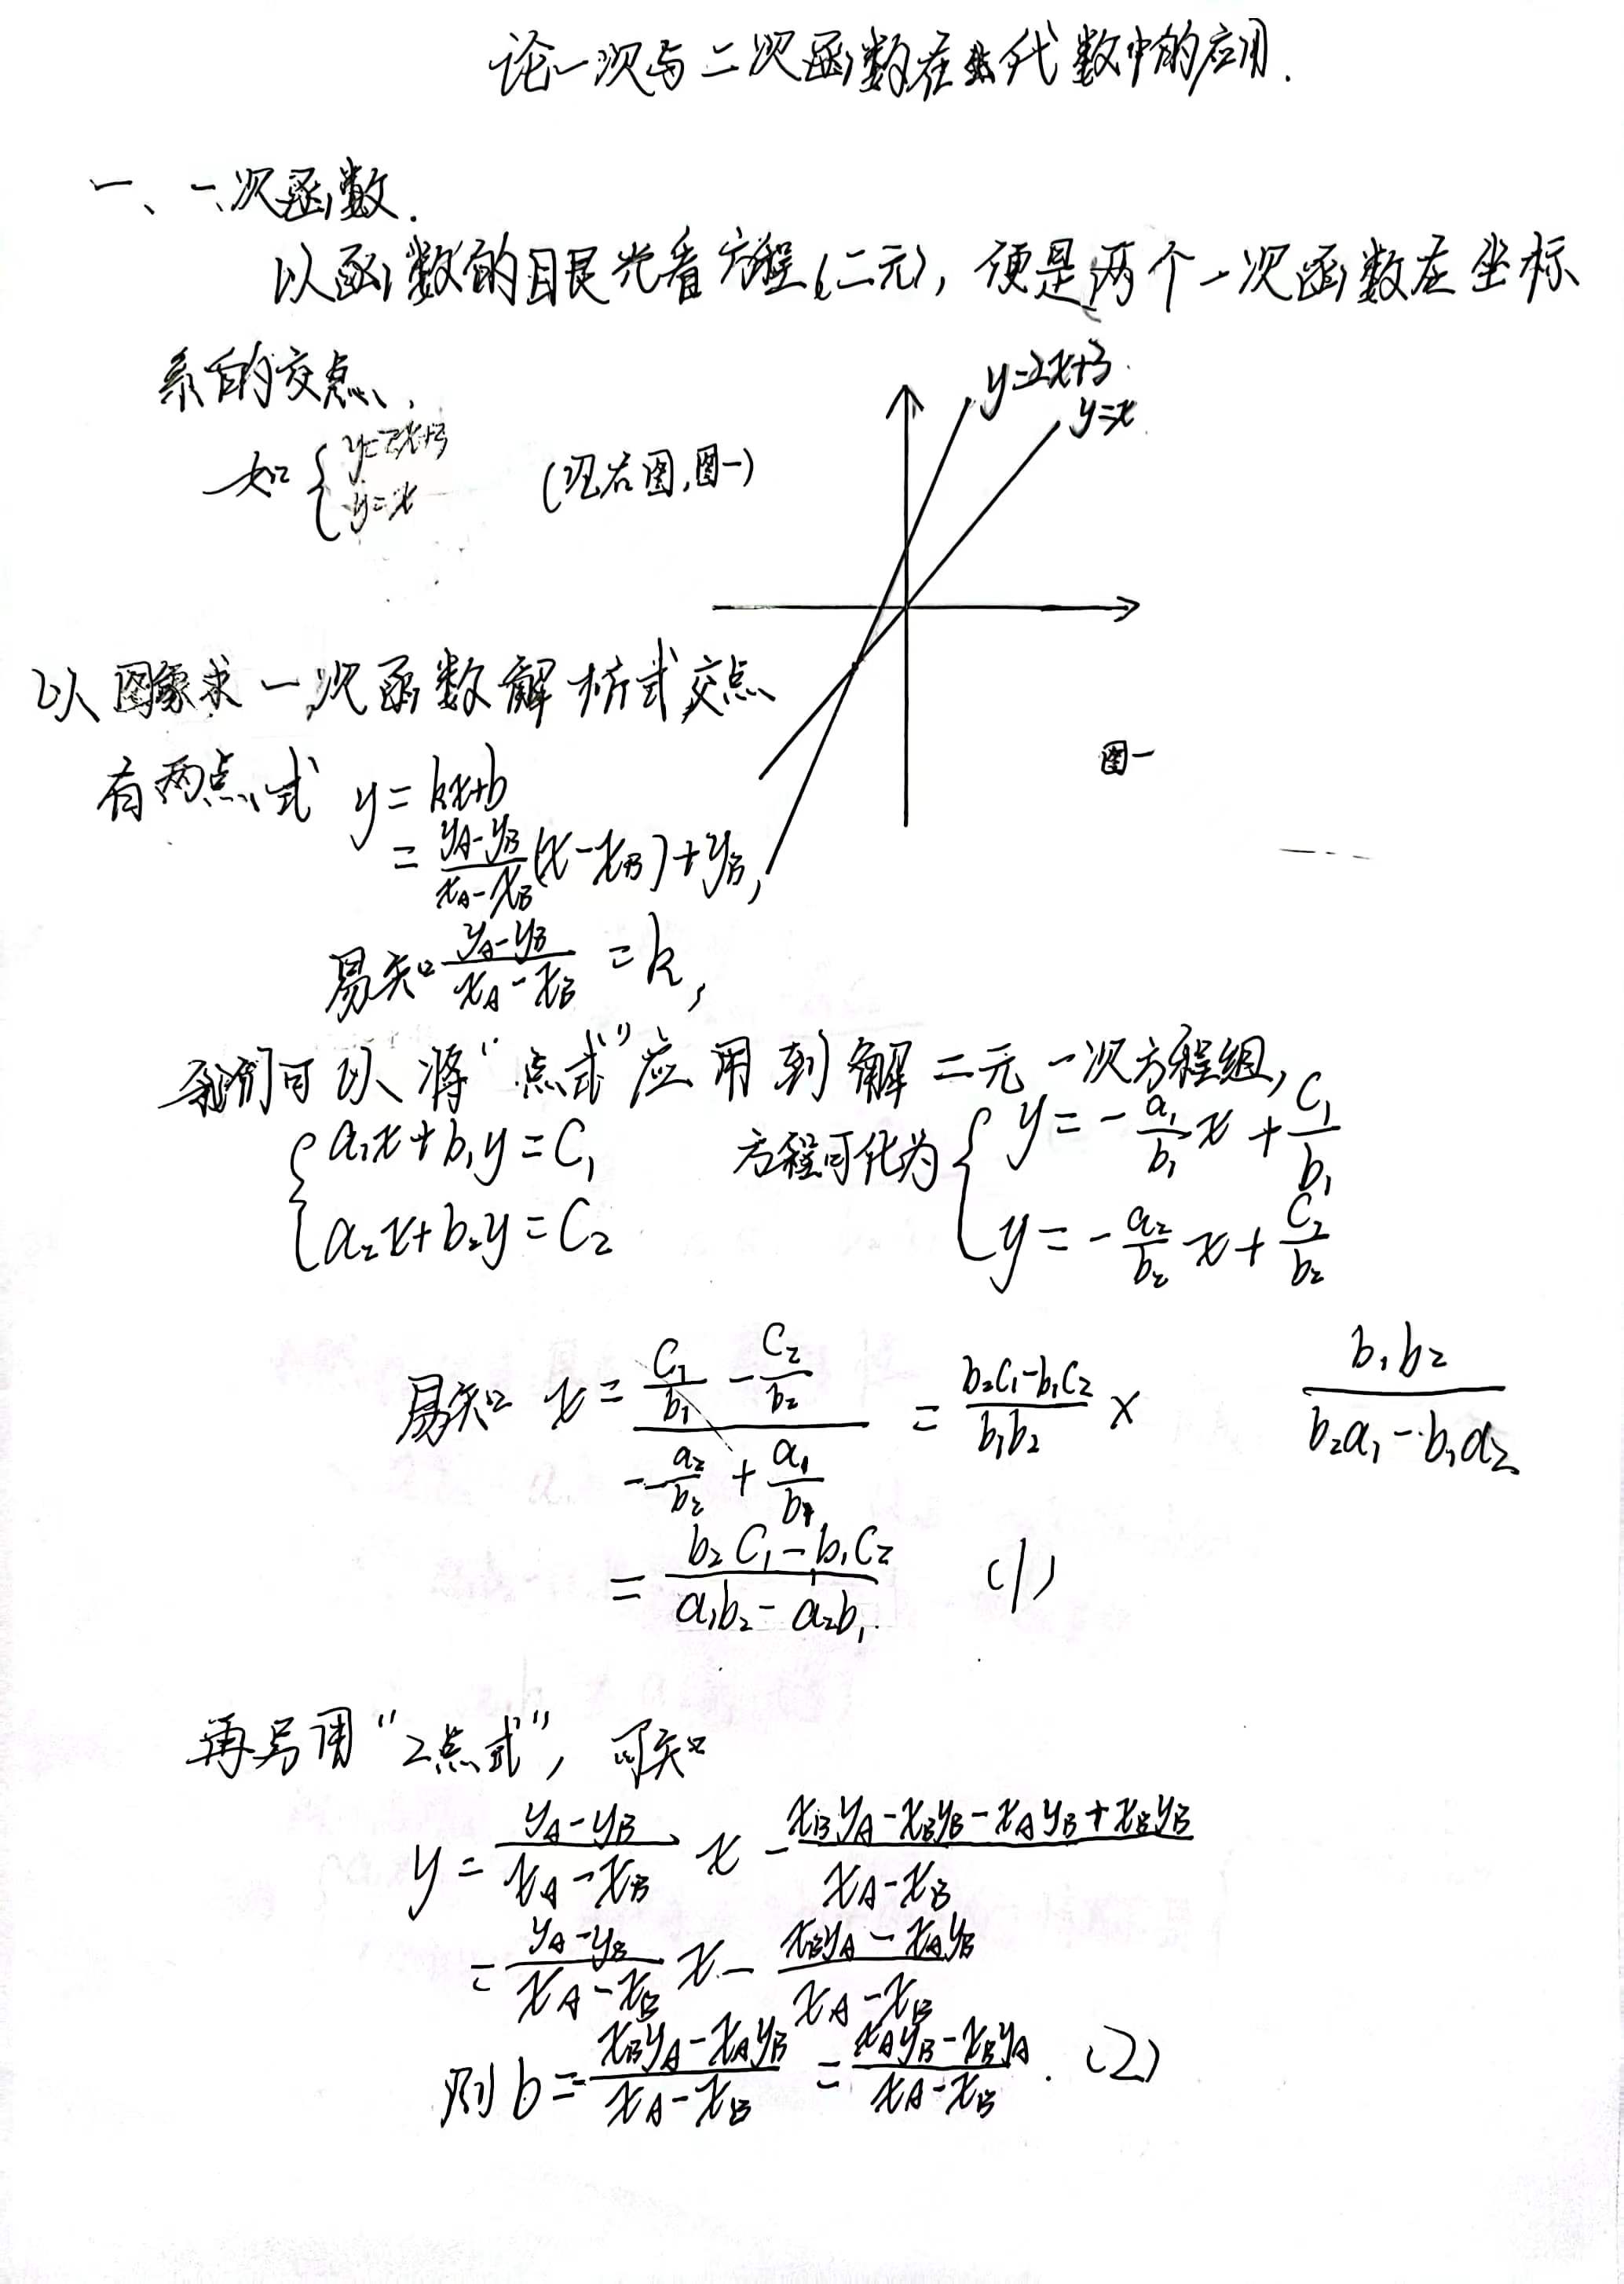 论一次与二次函数在代数中的应用.
一、一次函数.
以函数的目艮光看方程(二元), 便是两个一次函数在坐标
系的交点,
y=2x+3
y=x
如 { y=2x+3
y=x
(见右图,图一)
以图象求一次函数解析式交点
图一
有两点式 y = kx+b
= \frac{y_A-y_B}{x_A-x_B}(x-x_B)+y_B,
易知 \frac{y_A-y_B}{x_A-x_B} = k,
我们可以将“点式”应用到解二元一次方程组,
{ a_1x+b_1y=C_1
a_2x+b_2y=C_2
方程可化为 { y=-\frac{a_1}{b_1}x+\frac{C_1}{b_1}
y=-\frac{a_2}{b_2}x+\frac{C_2}{b_2}
易知 x = \frac{\frac{C_1}{b_1}-\frac{C_2}{b_2}}{-\frac{a_2}{b_2}+\frac{a_1}{b_1}} = \frac{b_2C_1-b_1C_2}{b_1b_2} × \frac{b_1b_2}{b_2a_1-b_1a_2}
= \frac{b_2C_1-b_1C_2}{a_1b_2-a_2b_1} (1)
再另用“2点式”, 可知
y = \frac{y_A-y_B}{x_A-x_B} x - \frac{x_By_A-x_By_B-x_Ay_B+x_By_B}{x_A-x_B}
= \frac{y_A-y_B}{x_A-x_B} x - \frac{x_By_A-x_Ay_B}{x_A-x_B}
则 b = -\frac{x_By_A-x_Ay_B}{x_A-x_B} = \frac{x_Ay_B-x_By_A}{x_A-x_B}. (2)